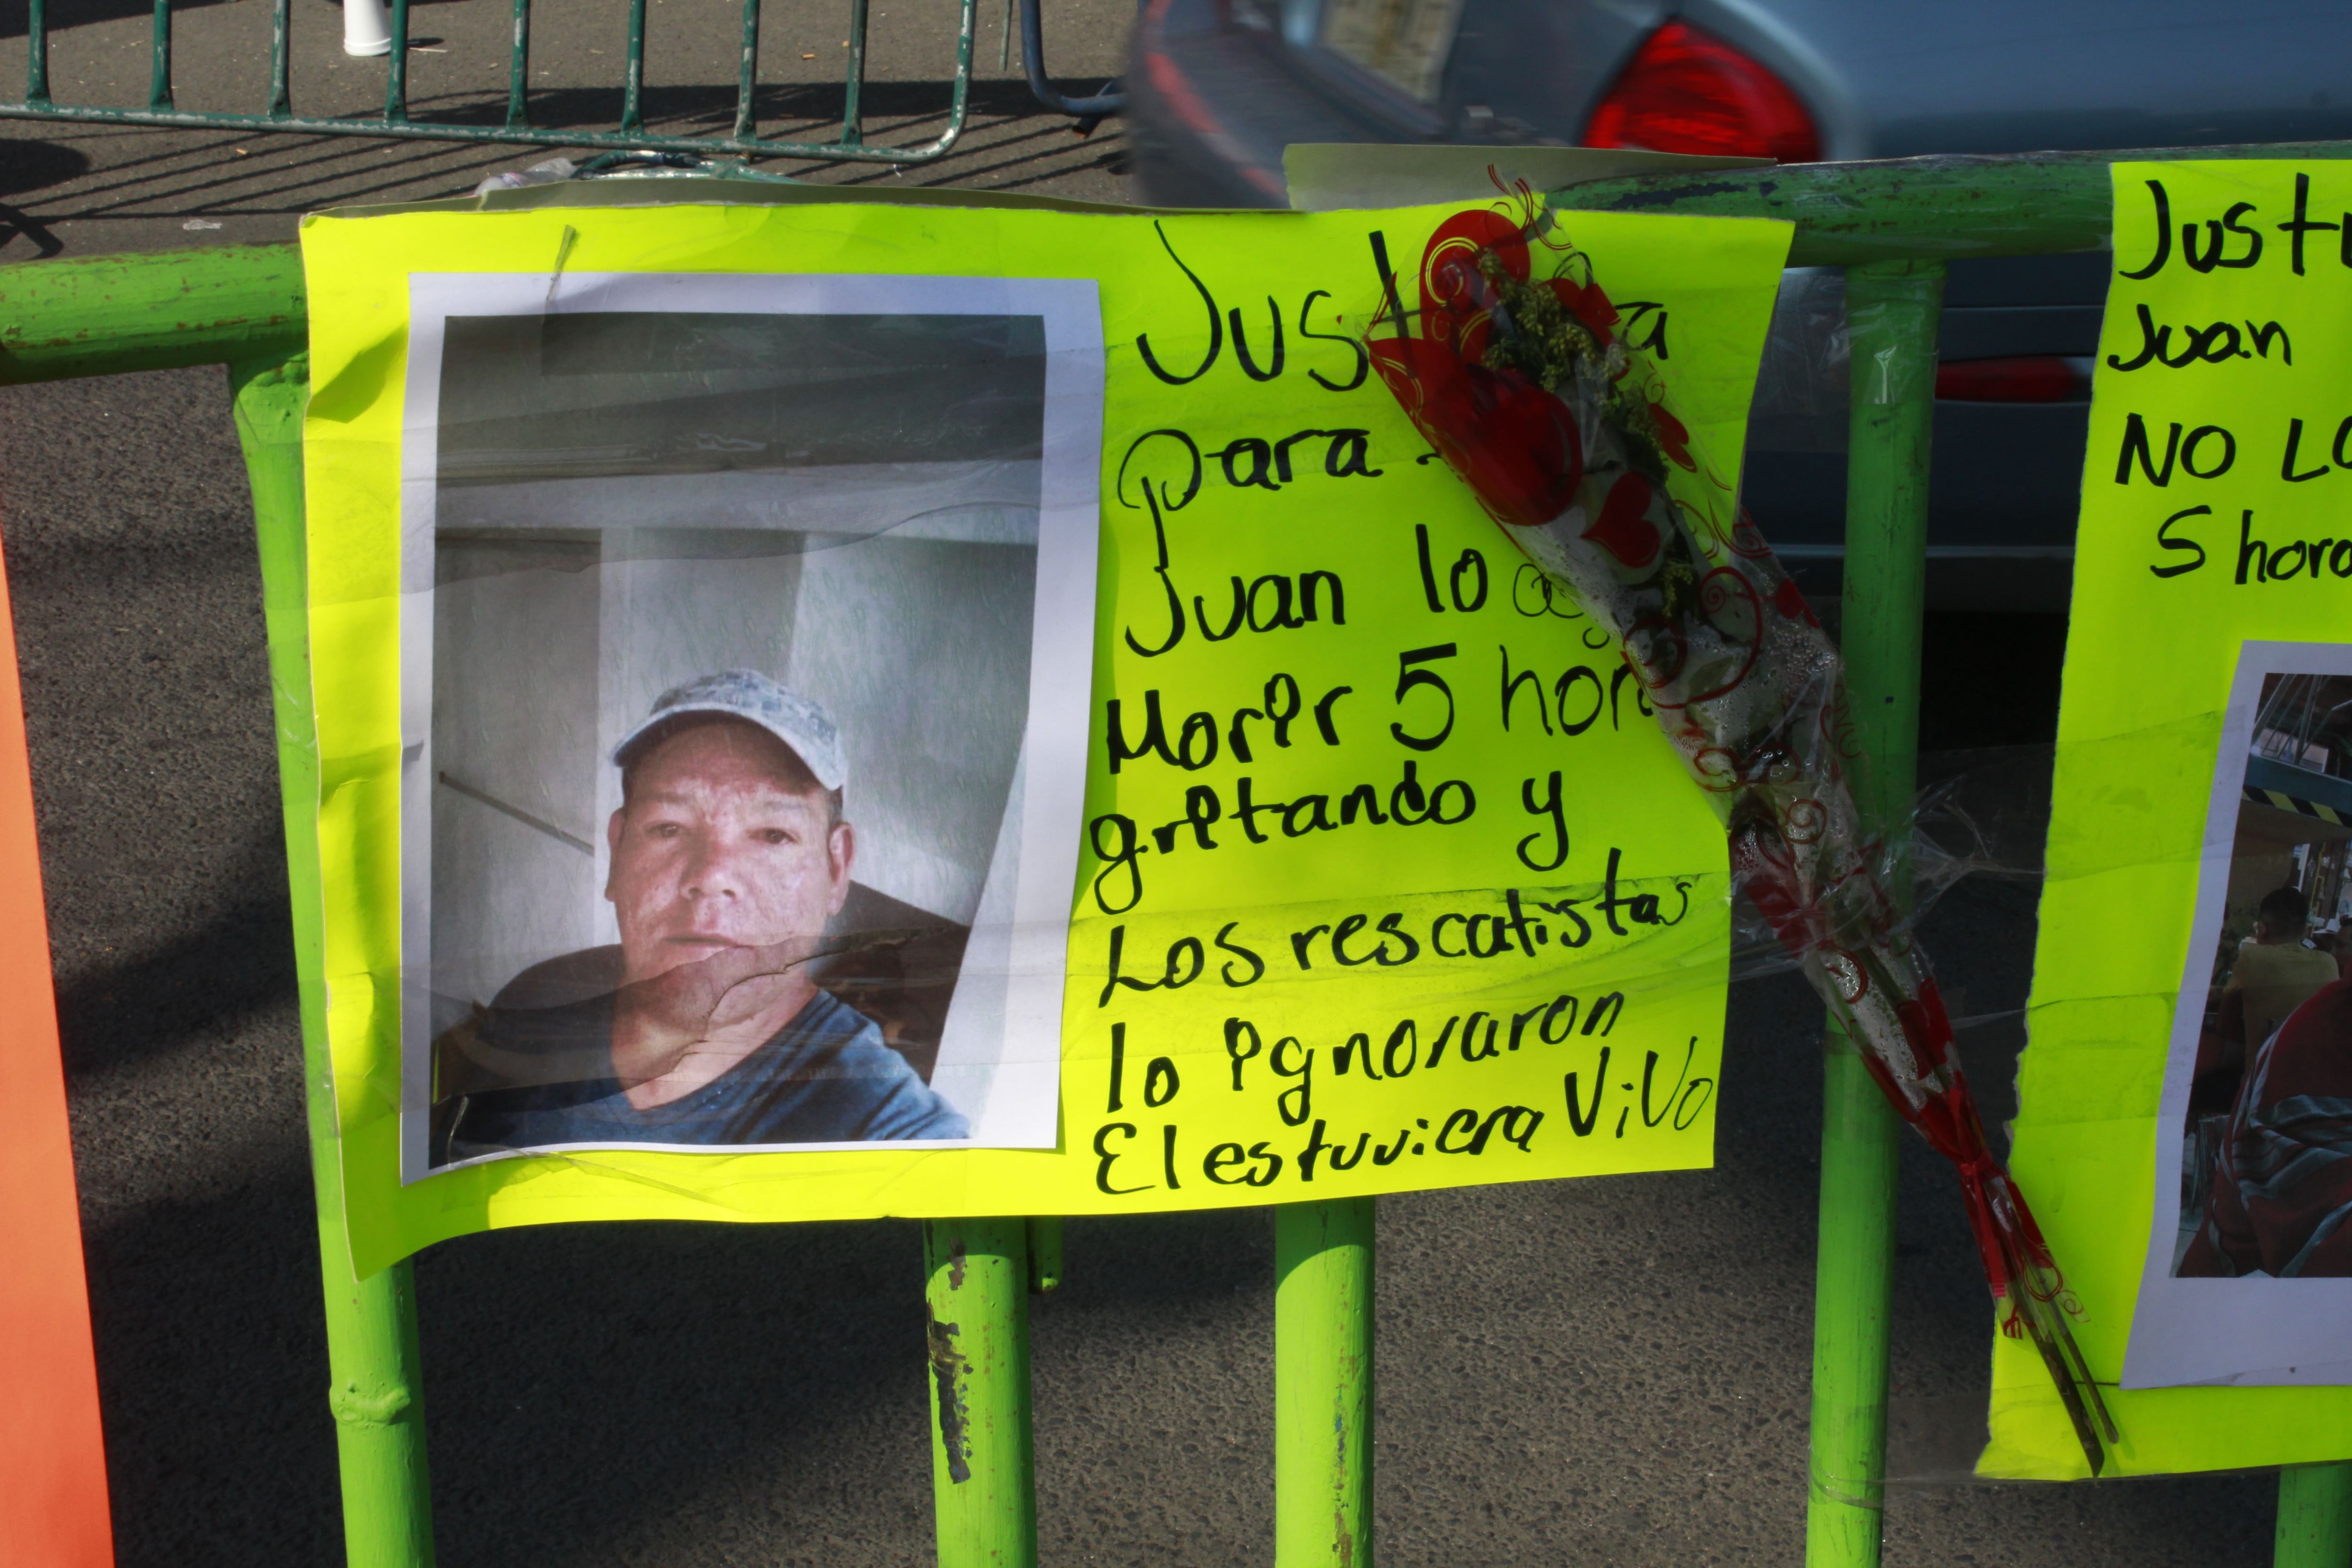 Jus
para
Juan lo
Morir 5 hor
gritando y
Los rescatistas
lo ignoraron
El estuviera ViVo
Justi
Juan
NO LO
5 hora